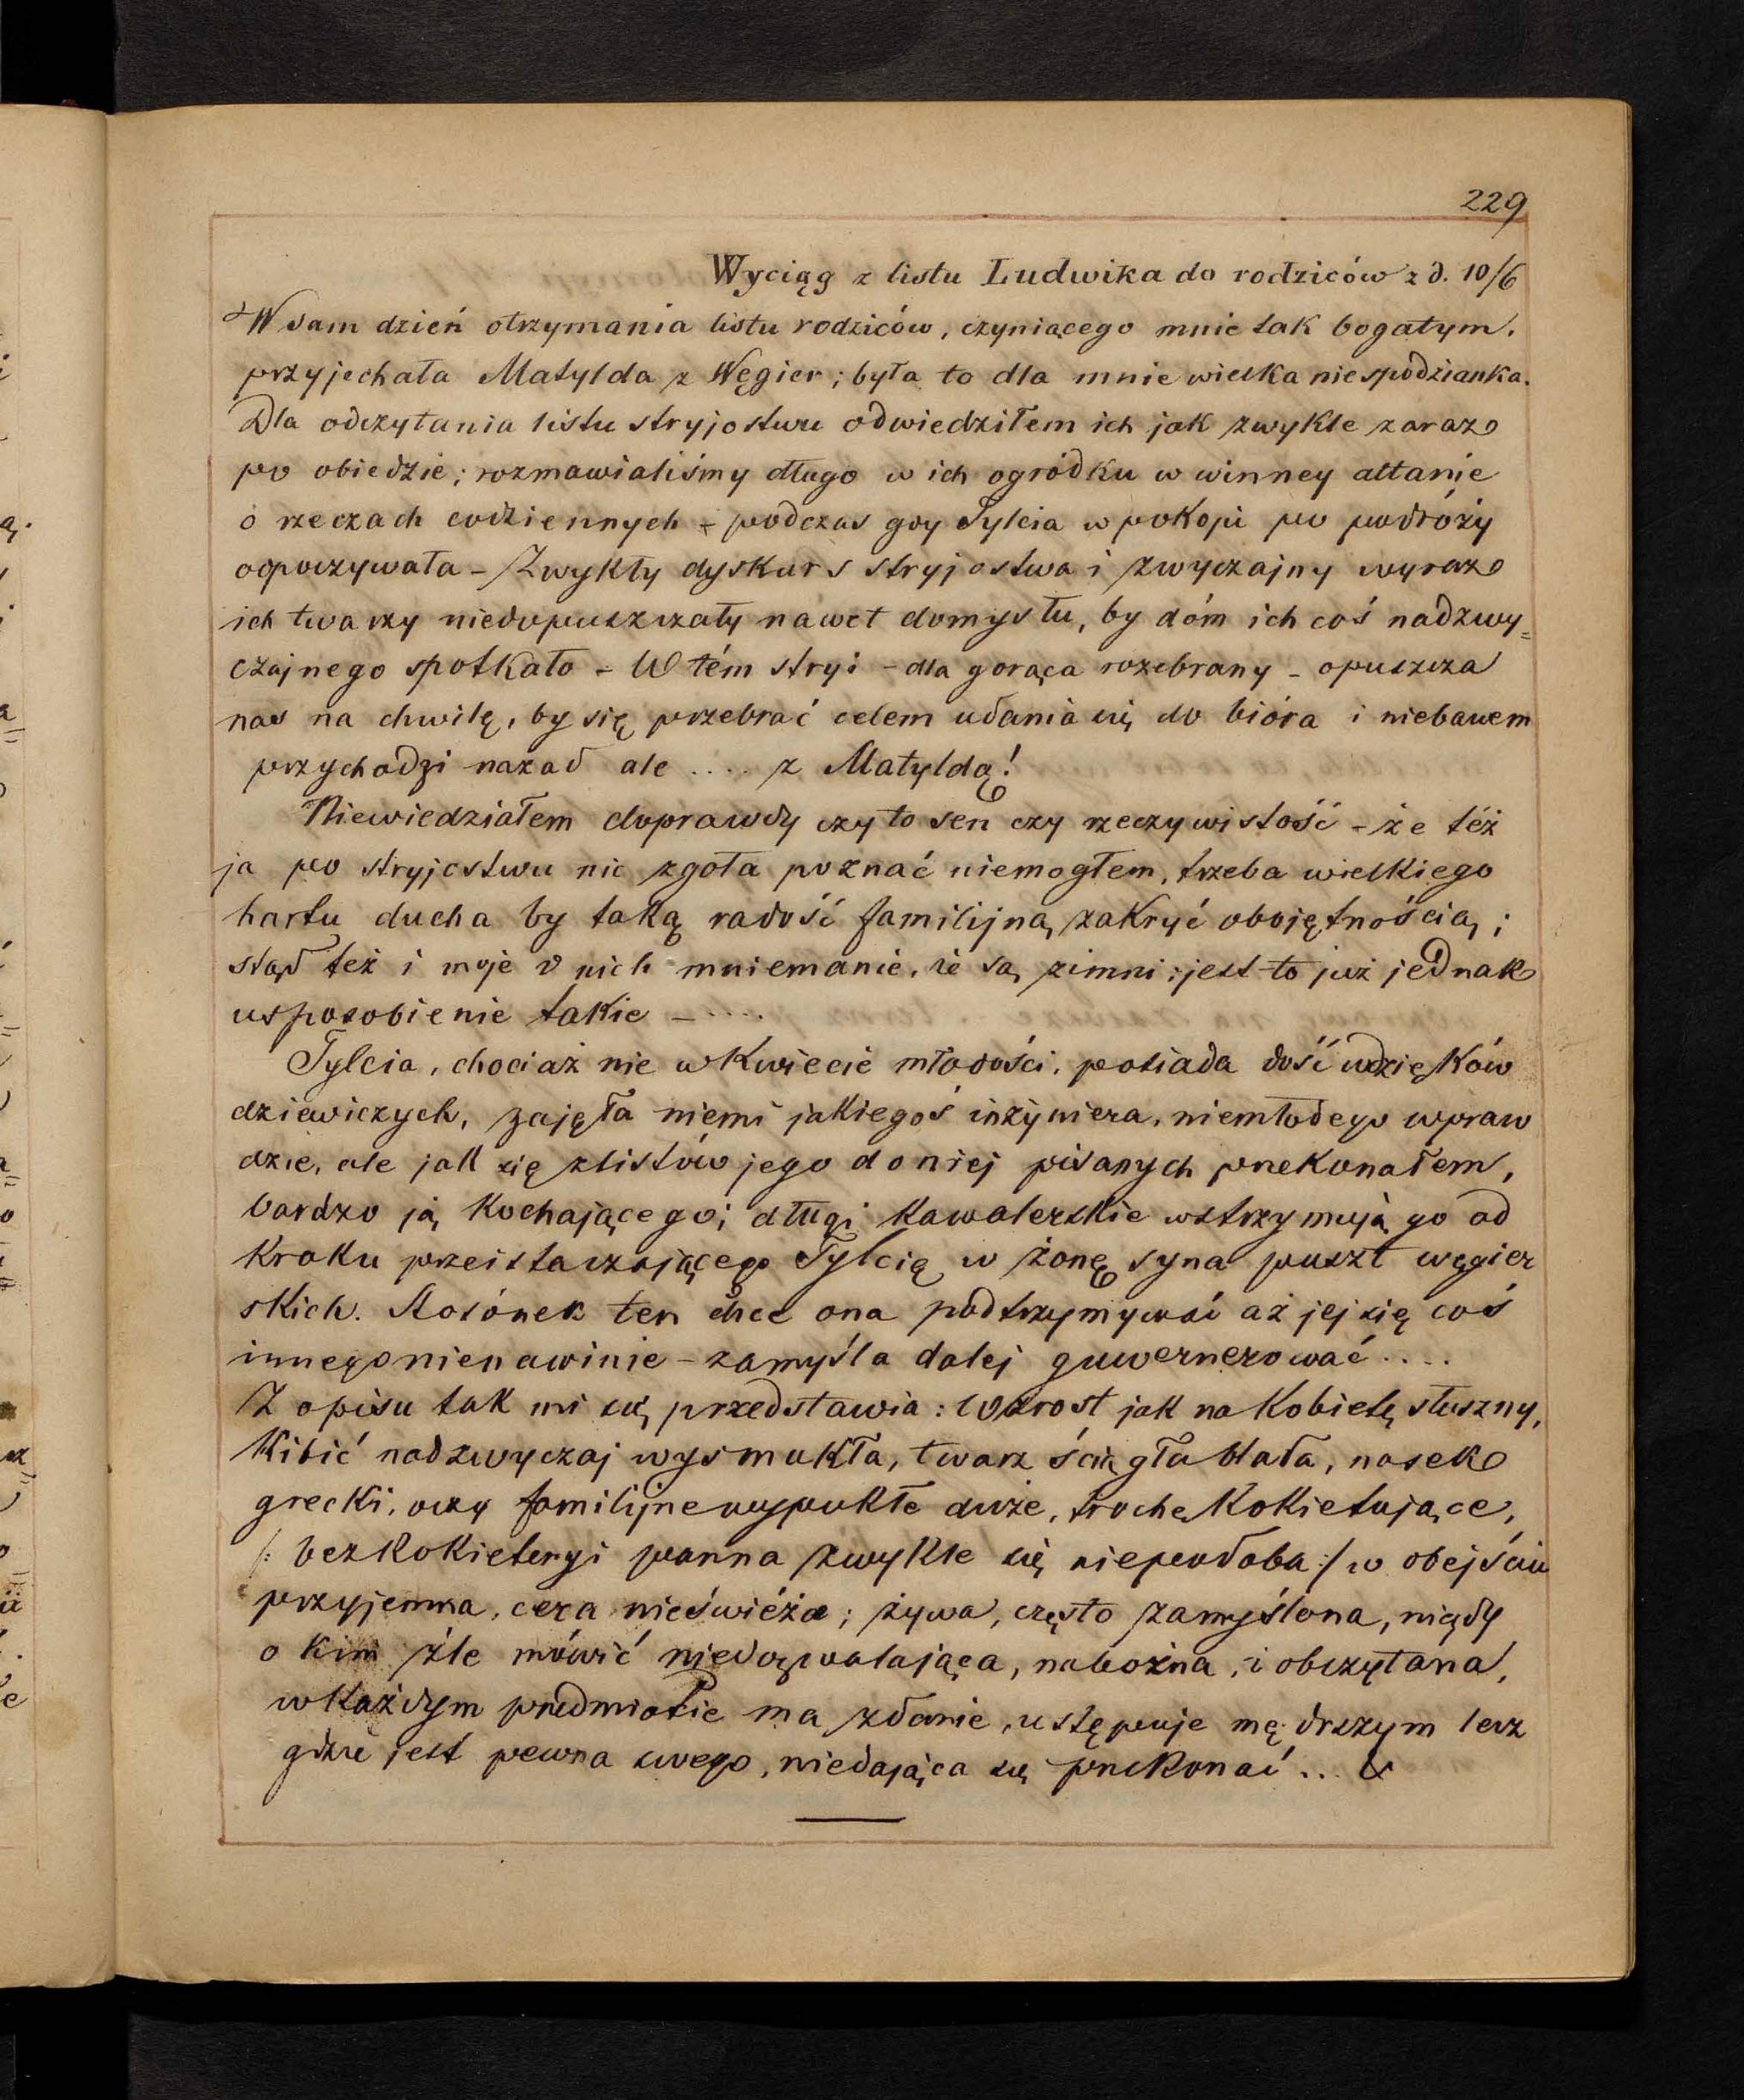 229
Wyciąg z listu Ludwika do rodziców z d. 10/6
W sam dzień otrzymania listu rodziców, czyniącego mnie tak bogatym,
przyjechała Matylda z Węgier; była to dla mnie wielka niespodzianka.
Dla odczytania listu stryjostwu odwiedziłem ich jak zwykle zaraz
po obiedzie; rozmawialiśmy długo w ich ogródku w winney altanie
o rzeczach codziennych – podczas gdy Tylcia w pokoju po podróży
odpoczywała – Zwykły dyskurs stryjostwa i zwyczajny wyraz
ich twarzy niedopuszczały nawet domysłu, by dóm ich coś nadzwy=
czajnego spotkało – W tém stryj – dla gorąca rozebrany – opuszcza
nas na chwilę, by się przebrać celem udania się do bióra i niebawem
przychodzi nazad ale .... z Matyldą!
Niewiedziałem doprawdy czy to sen czy rzeczywistość – że też
ja po stryjostwu nic zgoła poznać niemogłem, trzeba wielkiego
hartu ducha by taką radość familijną zakryć obojętnością;
stąd też i moje o nich mniemanie, że są zimni; jest to już jednak
usposobienie takie – ....
Tylcia, chociaż nie w kwiecie młodości, posiada dość wdzięków
dziewiczych, zajęła niemi jakiegoś inżyniera, niemłodego wpraw
dzie, ale jak się z listów jego do niej pisanych przekonałem,
bardzo ją kochającego; długi kawalerskie wstrzymują go od
kroku przeistaczającego Tylcię w żonę syna puszt węgier
skich. Stosónek ten chce ona podtrzymywać aż jej się coś
innego nienawinie – zamyśla dalej guwernerować ....
Z opisu tak mi się przedstawia: Wzrost jak na kobietę słuszny,
kibić nadzwyczaj wysmukła, twarz ściągła biała, nosek
grecki, oczy familijne wypukłe duże, trochę kokietujące,
/: bez kokieteryi panna zwykle się niepodoba :/ w obejściu
przyjemna, cera nieświéża; żywa, często zamyślona, nigdy
o kim źle mówić niedozwalająca, nabożna, i obczytana,
w każdym przedmiocie ma zdanie, ustępuje mędrszym lecz
gdzie jest pewna swego, niedająca się przekonać ... &